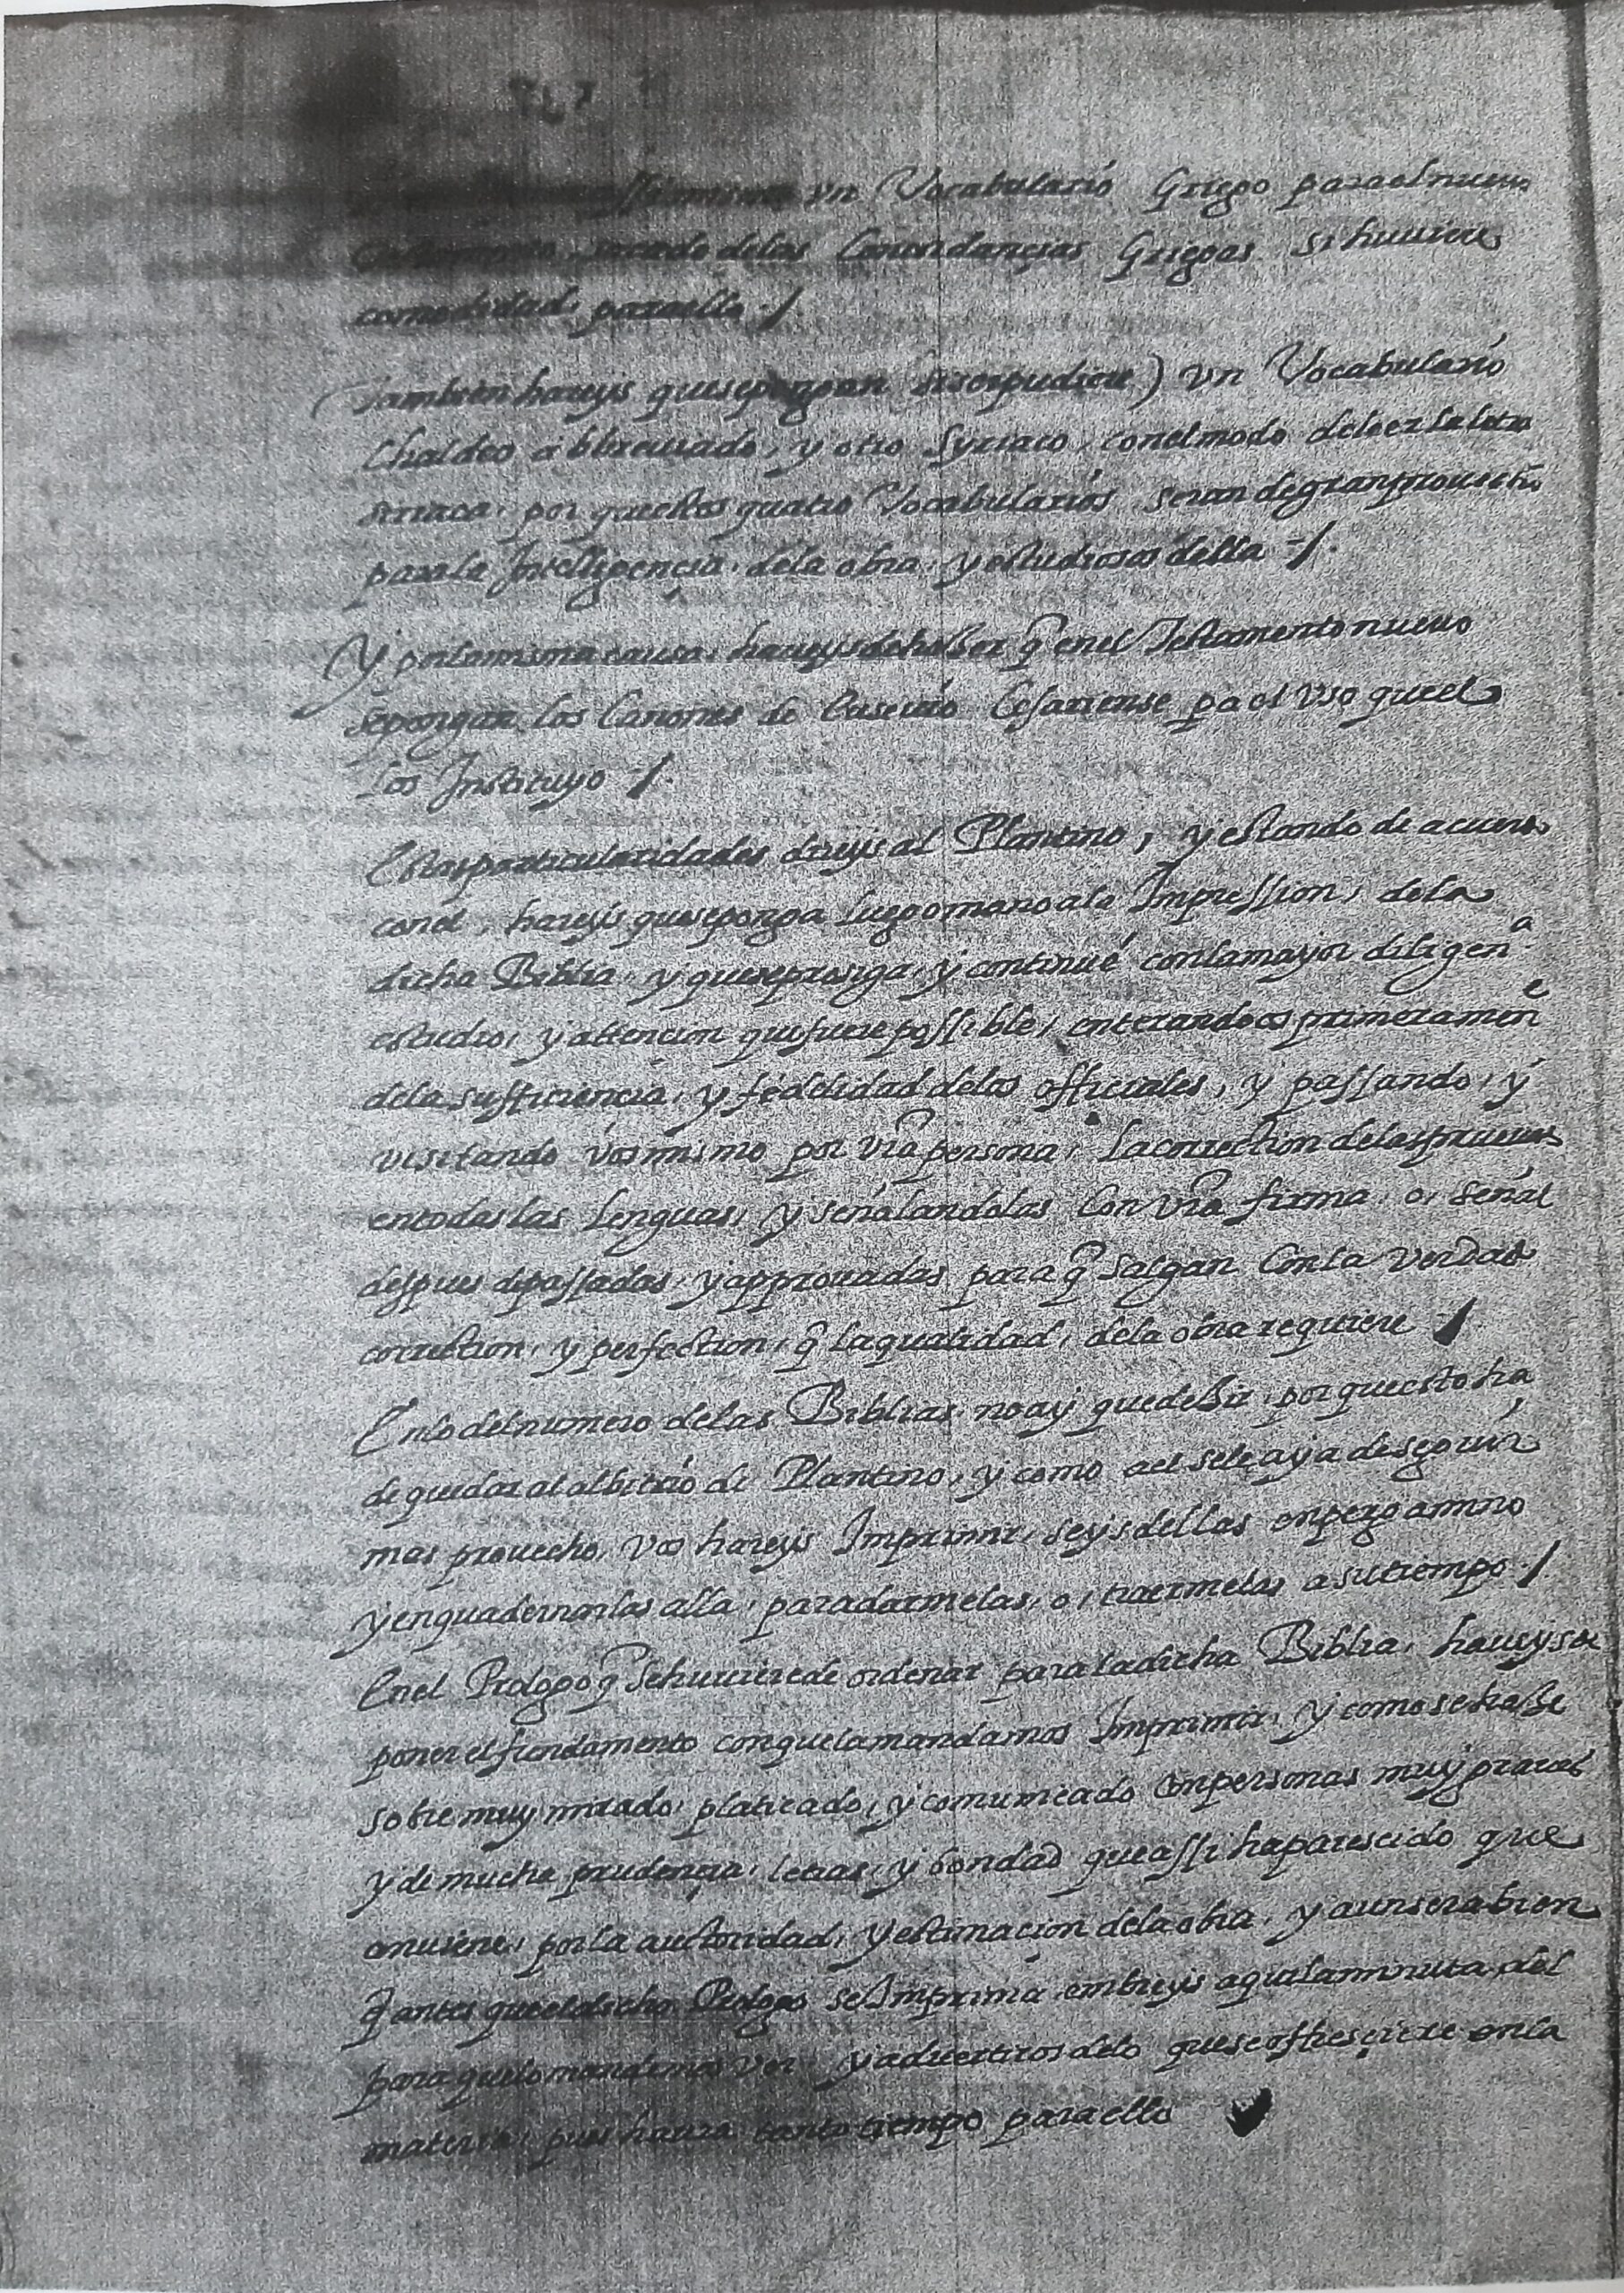 vn Vocabulario Griego para el nueuo
sacado delas Concordançias Griegas si huuiere
comodidad, para ello ./
Tambien hareys que se pongan si ser pudiere) vn Vocabulario
Chaldeo abbreuiado, y otro Syriaco, con el modo de leer la letra
siriaca, por que estos quatro Vocabularios seran de gran prouecho
para la Intelligençia, dela obra, y estudiosos della ./.
Y por la misma causa, haueys de hazer q̃ en el Testamento nueuo
se pongan los Canones de Eusebio Cesariense pa el vso que el
los Instituyo ./.
Estas particularidades direys al Plantino, y estando de acuerdo
con el, hareys que se ponga luego mano ala Impression, dela
dicha Biblia, y que se prosiga, y continue con la mayor diligenᵃ
estudio, y attencion que fuere possible, enterandoos primeramenᵉ
dela sufficiencia, y fidelidad delos officiales, y passando, y
visitando vos mismo por vr̃a persona, la correction delas prueuas
en todas las Lenguas, y señalandolas con vr̃a firma, o, señal
despues de passadas, y approuadas para q̃ salgan con la verdad
correction, y perfection, q̃ la qualidad, dela obra requiere ./
En lo del numero delas Biblias, no ay que dezir, por que esto ha
de quedar al albitrio de Plantino, y como a el se le aya de seguir
mas prouecho, vos hareys Imprimir, seys dellas en pergamino
y enquadernarlas alla, para darmelas, o, traermelas a su tiempo ./
En el Prologo q̃ se huuiere de ordenar para la dicha Biblia, haueys de
poner el fundamento con que la mandamos Imprimir, y como se haze
sobre muy mirado, platicado, y comunicado con personas muy graues
y de mucha prudençia, letras, y bondad que assi ha parescido que
conuiene, por la auctoridad, y estimacion dela obra, y aun sera bien
q̃ antes que el dicho Prologo se Imprima embieys aqui la minuta del
para que lo mandemos ver, y aduertiros delo que se offresçiere en la
materia, pues haura tanto tiempo para ello